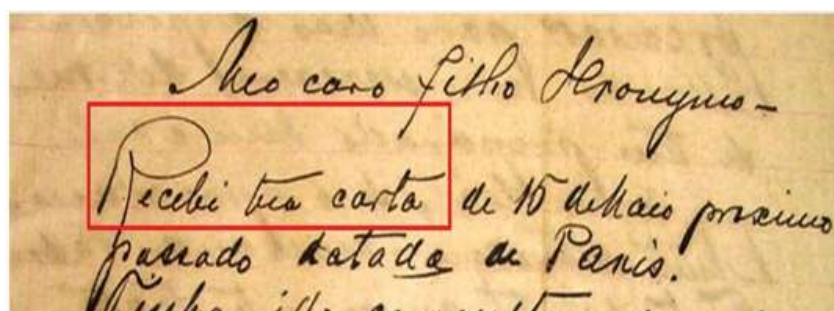 Meo caro filho Ieronymo -
Recebi tua carta de 15 de Maio proximo
passado datada de Paris.
Tinha